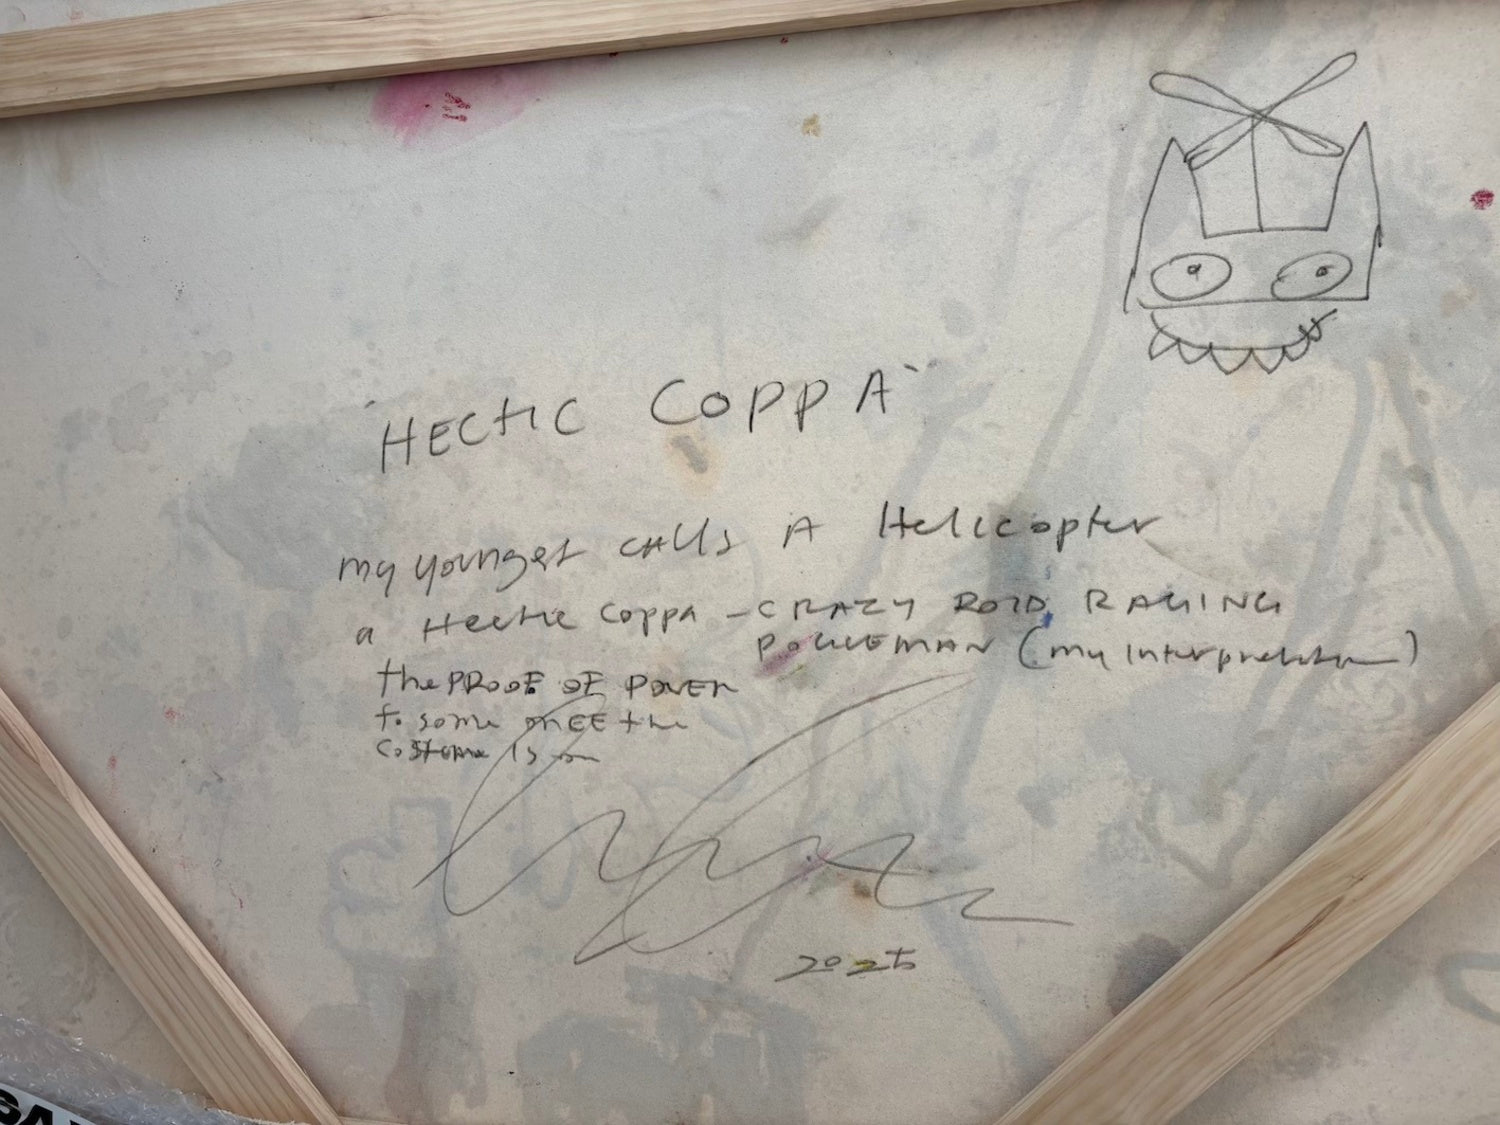 "HECTIC COPPA"
my youngest CALLS A Helicopter
a Hectic Coppa – CRAZY ROID RAGING
POLICEMAN (my interpretation)
the PROOF OF POWER
to some MEE the
Costume is on
2025
SA